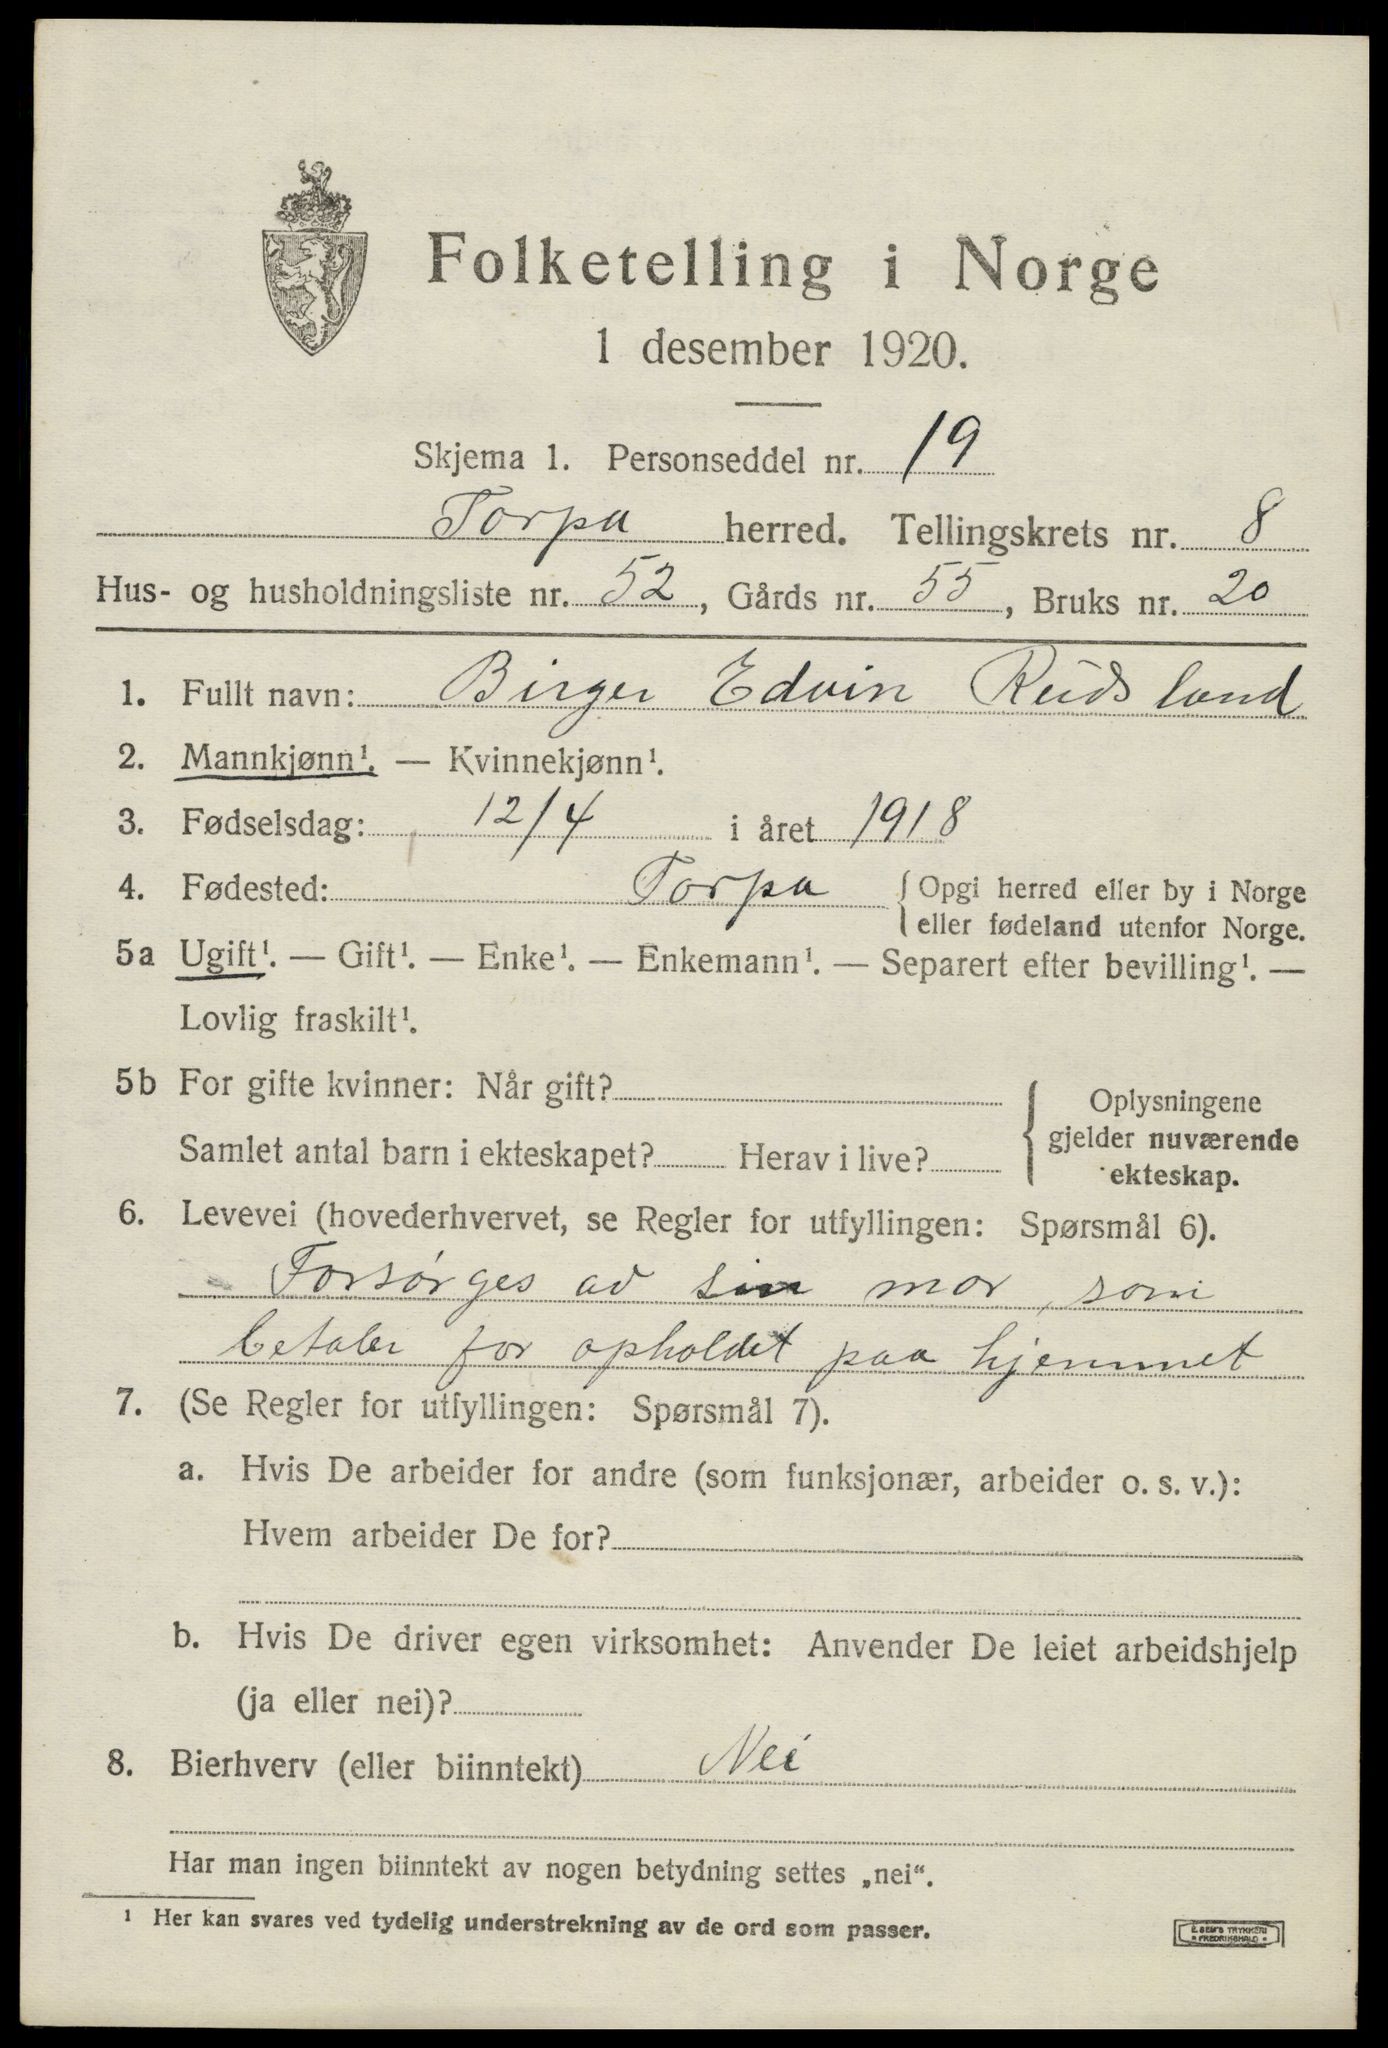 Folketelling i Norge
1 desember 1920.
Skjema 1. Personseddel nr. 19
Torpa herred. Tellingskrets nr. 8
Hus- og husholdningsliste nr. 52, Gårds nr. 55, Bruks nr. 20
1. Fullt navn: Birger Edvin Rudsland
2. Mannkjønn¹. — Kvinnekjønn¹.
3. Fødselsdag: 12/4 i året 1918
4. Fødested: Torpa { Opgi herred eller by i Norge
eller fødeland utenfor Norge.
5a Ugift¹. — Gift¹. — Enke¹. — Enkemann¹. — Separert efter bevilling¹. —
Lovlig fraskilt¹.
5b For gifte kvinner: Når gift?
Samlet antal barn i ekteskapet? Herav i live?
Oplysningene
gjelder nuværende
ekteskap.
6. Levevei (hovederhvervet, se Regler for utfyllingen: Spørsmål 6).
Forsørges av sin mor, som
betaler for opholdet paa hjemmet
7. (Se Regler for utfyllingen: Spørsmål 7).
a. Hvis De arbeider for andre (som funksjonær, arbeider o. s. v.):
Hvem arbeider De for?
b. Hvis De driver egen virksomhet: Anvender De leiet arbeidshjelp
(ja eller nei)?
8. Bierhverv (eller biinntekt) Nei
Har man ingen biinntekt av nogen betydning settes „nei“.
¹ Her kan svares ved tydelig understrekning av de ord som passer.
E. SEM'S TRYKKERI
FREDRIKSHALD